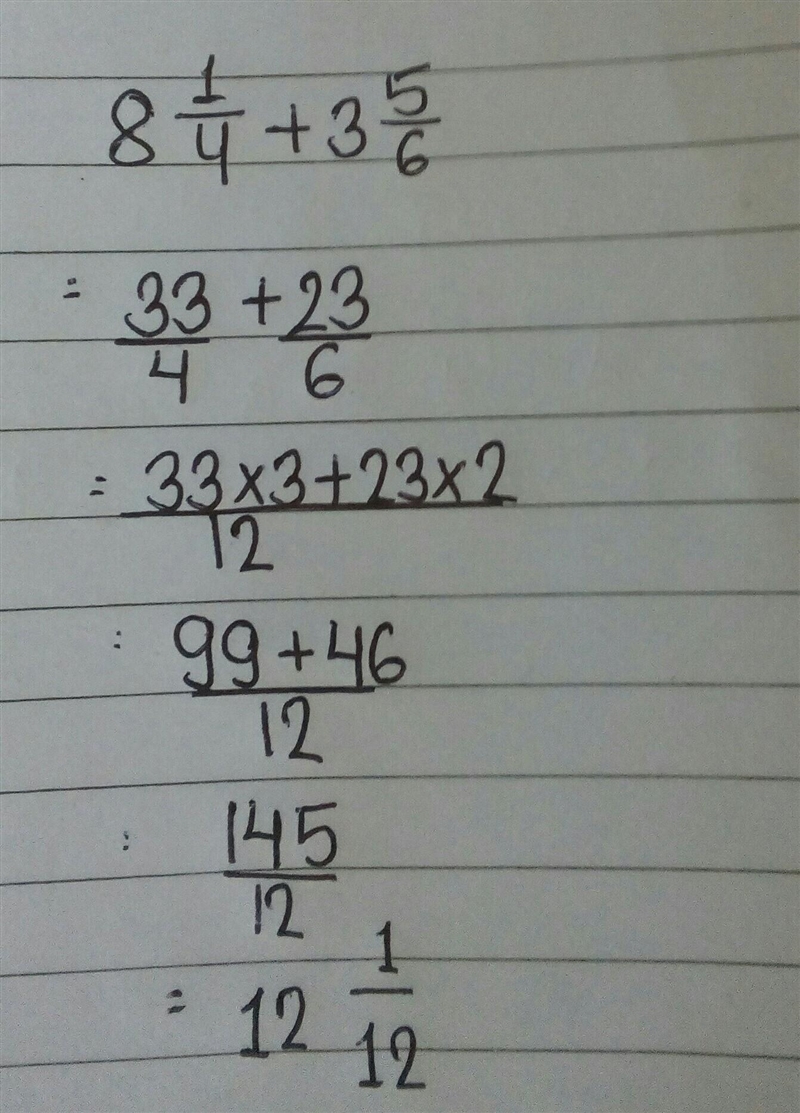 8 1/4 + 3 5/6
= 33/4 + 23/6
= 33×3+23×2/12
: 99+46/12
: 145/12
= 12 1/12